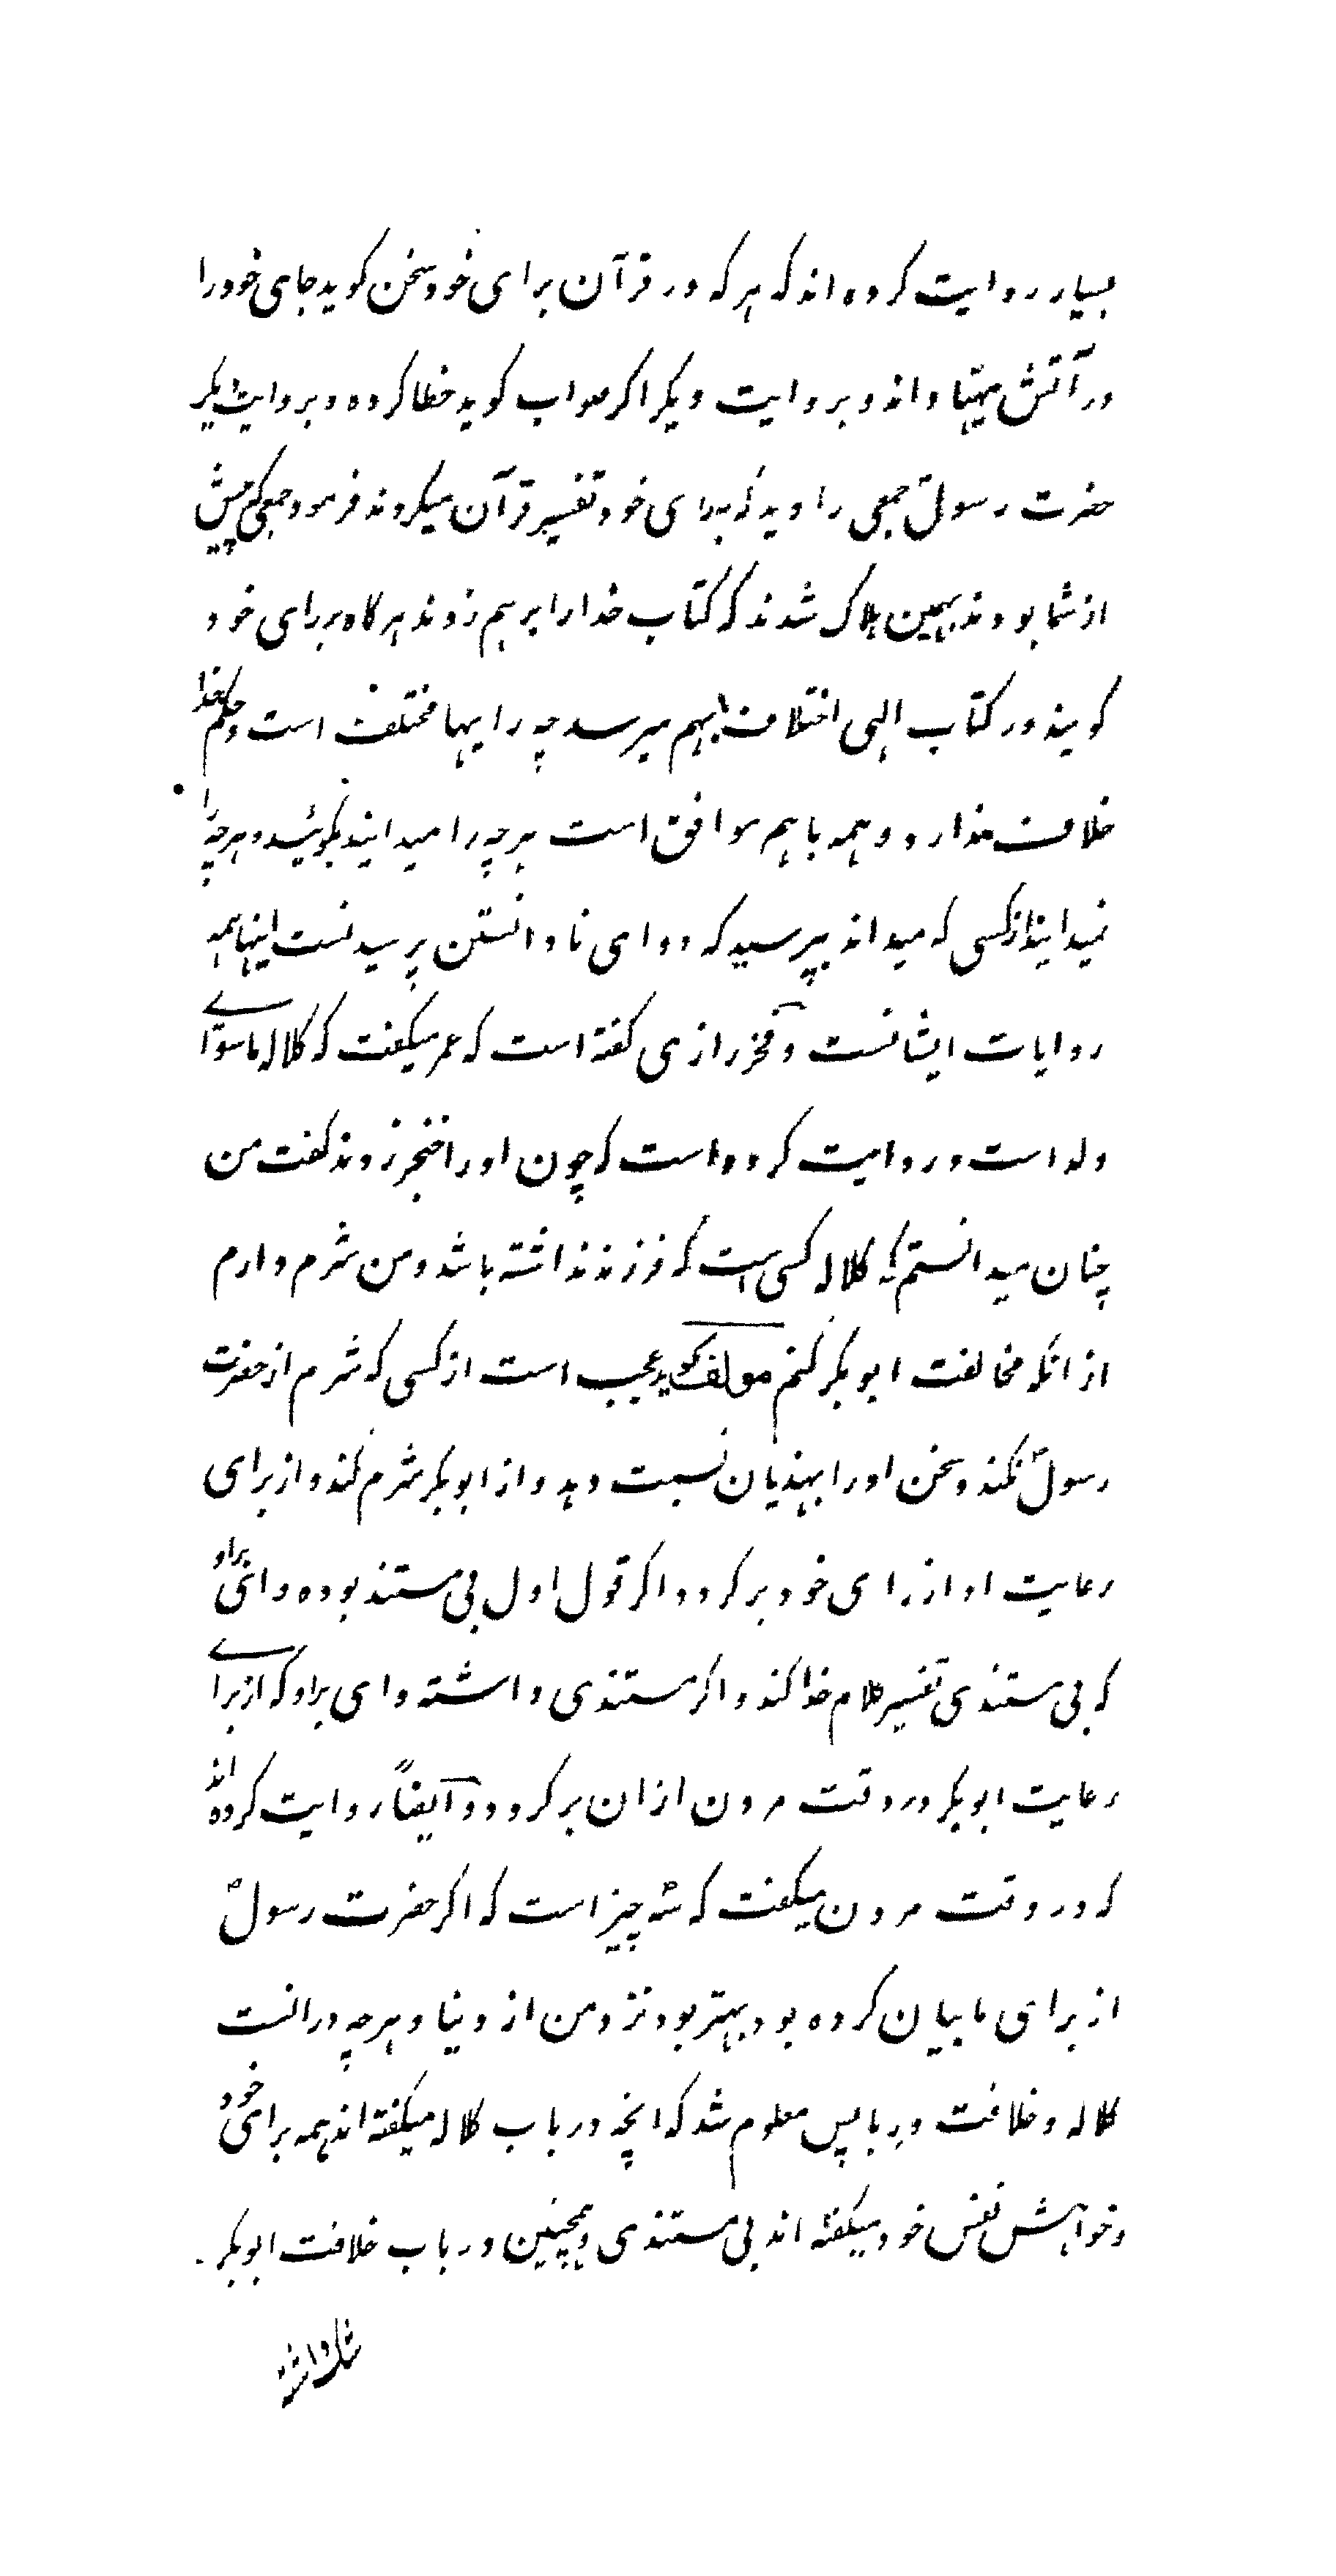 بسیار روایت کرده‌اند که هر که در قرآن برای خود سخن کوید جای خود را
در آتش مهیا داند و بروایت دیکر اکر صواب کوید خطا کرده و بروایت دیکر
حضرت رسول جمعی را دید که برای خود تفسیر قرآن میکردند فرمود جمعی که پیش
از شما بودند بهمین هلاک شدند که کتاب خدا را بر هم زدند هر کاه برای خود
کویند در کتاب الهی اختلاف بهم میرسد چه رایها مختلف است و حکم خدا
خلاف ندارد و همه با هم موافق است هر چه را میدانید بکوئید و هر چه را
نمیدانید از کسی که میداند بپرسید که دوای نادانستن پرسیدنست اینها همه
روایات ایشانست و فخر رازی کفته است که عمر میکفت که کلاله ماسوای
ولد است و روایت کرده است که چون او را خنجر زدند کفت من
چنان میدانستم که کلاله کسی است که فرزند نداشته باشد و من شرم دارم
از انکه مخالفت ابوبکر کنم مولف کوید عجب است از کسی که شرم از حضرت
رسول نکند و سخن او را بهذیان نسبت دهد و از ابوبکر شرم کند و از برای
رعایت او از رای خود بر کردد اکر قول اول بی مستند بوده وای بر او
که بی مستندی تفسیر کلام خدا کند و اکر مستندی داشته وای بر او که از برای
رعایت ابوبکر در وقت مردن از ان بر کردد و ایضاً روایت کرده اند
که در وقت مردن میکفت که سه چیز است که اکر حضرت رسول
از برای ما بیان کرده بود بهتر بود نزد من از دنیا و هر چه در انست
کلاله و خلافت و ربا پس معلوم شد که انچه در باب کلاله میکفته اند همه برای خود
و خواهش نفس خود میکفته اند بی مستندی و همچنین در باب خلافت ابوبکر
شک داشته